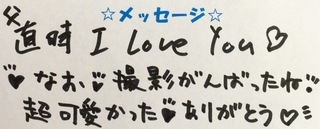 ☆メッセージ☆
直時 I Love You♡
♥なお♥撮影がんばったね!
超可愛かった♥ありがとう♡